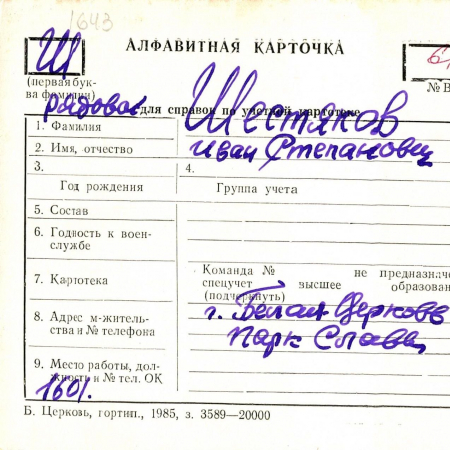 1643
Ш
АЛФАВИТНАЯ КАРТОЧКА
(первая бук-
ва фамилии)
№ В
рядовой
для справок по учетной картотеке
1. Фамилия Шестяков
2. Имя, отчество Иван Степанович
3. 4.
Год рождения Группа учета
5. Состав
6. Годность к воен-
службе
7. Картотека
Команда № не предназначе
спецучет высшее образован
(подчеркнуть)
8. Адрес м-житель-
ства и № телефона
г. Белая Церковь
Парк Славы
9. Место работы, дол-
жность и № тел. ОК
1601.
Б. Церковь, гортип., 1985, з. 3589—20000